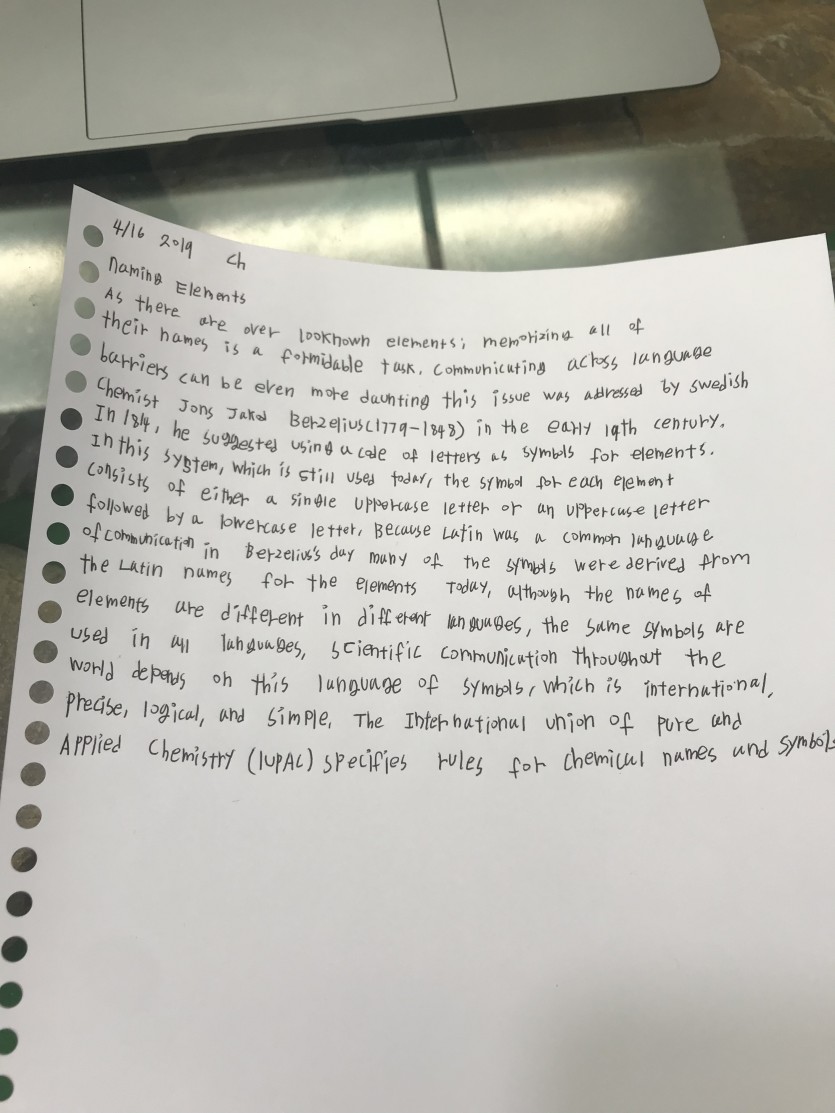 4/16 2019 Ch
Naming Elements
As there are over 100known elements; memorizing all of
their names is a formidable task. Communicating across language
barriers can be even more daunting this issue was addressed by swedish
Chemist Jons Jakob Berzelius(1779-1848) in the early 19th century.
In 1814, he suggested using a code of letters as symbols for elements.
In this system, which is still used today, the symbol for each element
consists of either a single uppercase letter or an uppercase letter
followed by a lowercase letter, Because Latin was a common language
of communication in Berzelius's day many of the symbols were derived from
the Latin names for the elements Today, although the names of
elements are different in different languages, the same symbols are
used in all languages, scientific communication throughout the
world depends on this language of symbols, which is international,
precise, logical, and simple. The International union of pure and
Applied Chemistry (IUPAC) specifies rules for chemical names and symbols